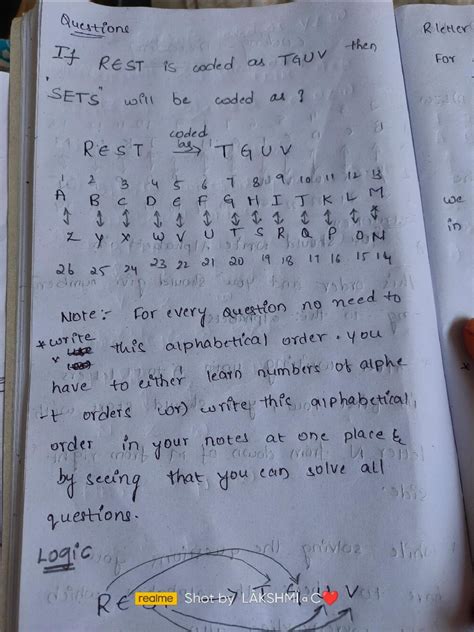 Questions
If REST is coded as TGUV then
"SETS" will be coded as ?
coded
REST as→ TGUV
1 2 3 4 5 6 7 8 9 10 11 12 13
A B C D E F G H I J K L M
↕ ↕ ↕ ↕ ↕ ↕ ↕ ↕ ↕ ↕ ↕ ↕ ↕
Z Y X W V U T S R Q P O N
26 25 24 23 22 21 20 19 18 17 16 15 14
Note:- For every question no need to
* write this alphabetical order. you
have to either learn numbers of alphe
-t orders (or) write this alphabetical
order in your notes at one place &
by seeing that you can solve all
questions.
Logic
RES
V
realme Shot by LAKSHMI.a C❤
R letter
For
we
in